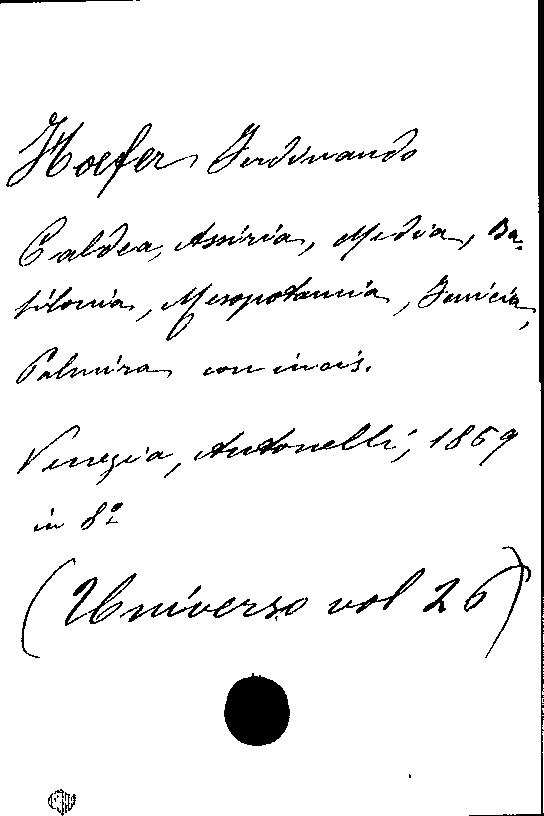 Hoefer Ferdinando
Caldea, Assiria, Media, Ba-
bilonia, Mesopotamia, Fenicia,
Palmira con incis.
Venezia, Antonelli, 1869
in 8º
(Universo vol 26)